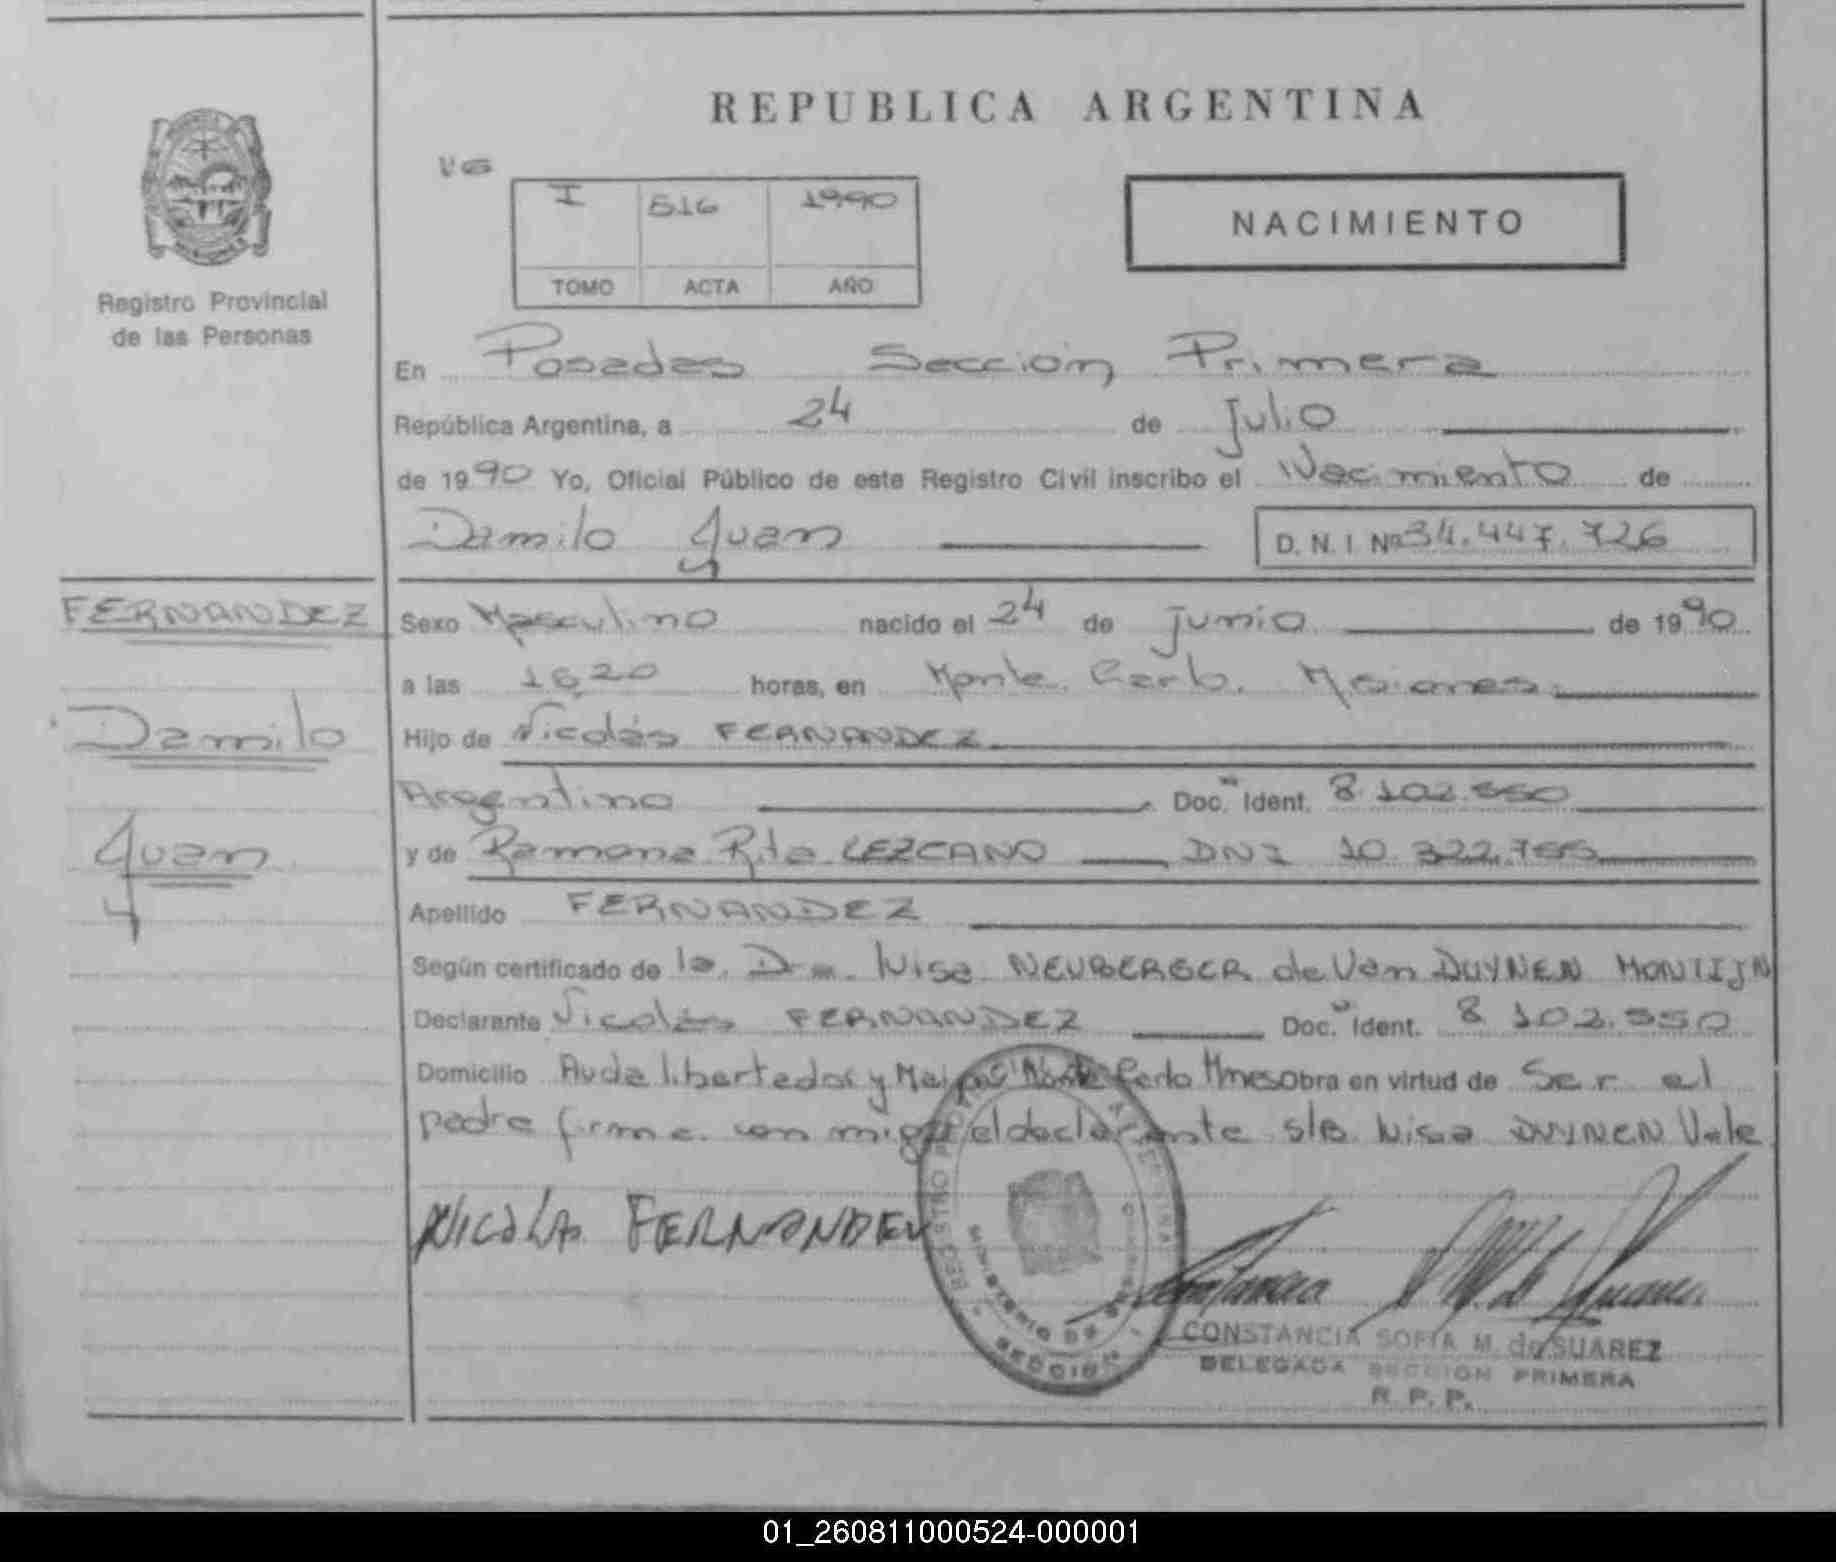 REPUBLICA ARGENTINA
Registro Provincial
de las Personas
I 516 1990
TOMO ACTA AÑO
NACIMIENTO
En Posadas Sección Primera
República Argentina, a 24 de julio
de 1990 Yo, Oficial Público de este Registro Civil inscribo el Nacimiento de
Damilo Juan D. N. I. Nº 34.447.726
FERNANDEZ
Damilo
Juan
Sexo Masculino nacido el 24 de junio de 1990
a las 16,20 horas, en Monte Carlo, Misiones
Hijo de Nicolás FERNANDEZ
Argentino Doc. Ident. 8.102.550
y de Ramona Rita LEZCANO DNI 10.322.755
Apellido FERNANDEZ
Según certificado de la Dra. Luisa NEUBERGER de Van DUYNEN MONTIJN
Declarante Nicolás FERNANDEZ Doc. Ident. 8 102.550
Domicilio Avda libertador y Maipú Monte Carlo Mnes obra en virtud de Ser el
padre firma con migo el declarante s/b Luisa DUYNEN Vale
NICOLAS FERNANDEZ
REGISTRO
MINISTERIO DE
SECCION
CONSTANCIA SOFIA M. de SUAREZ
DELEGADA SECCION PRIMERA
R. P. P.
01_260811000524-000001